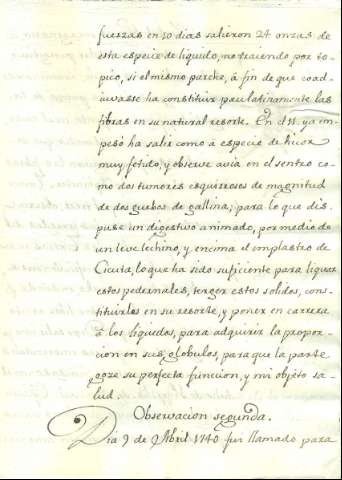 fuerzas en 10 dias salieron 24 onzas de
esta especie de liquido, no traiendo por to-
pico, si el mismo parche, à fin de que coad-
iuvasse ha constituir paulatinamente las
fibras en su natural resorte. En el 11. ya im-
pesò ha salir como à especie de hicor
muy fetudo; y observe avia en el sentro co-
mo dos tumores esquirrosos de magnitud
de dos guebos de gallina; para lo que dis-
puse un digestivo animado, por medio de
un leve lechino, y encima el implastro de
Cicuta, lo que ha sido suficiente para liquar
estos pedernales, terger estos solidos, cons-
tituirlos en su resorte, y poner en carrera
à los liquidos, para adquirir la propor-
cion en sus globulos, para que la parte
goze su perfecta funcion, y mi objeto sa-
lud.
Observacion segunda.
Dia 9 de Abril 1740 fui llamado para